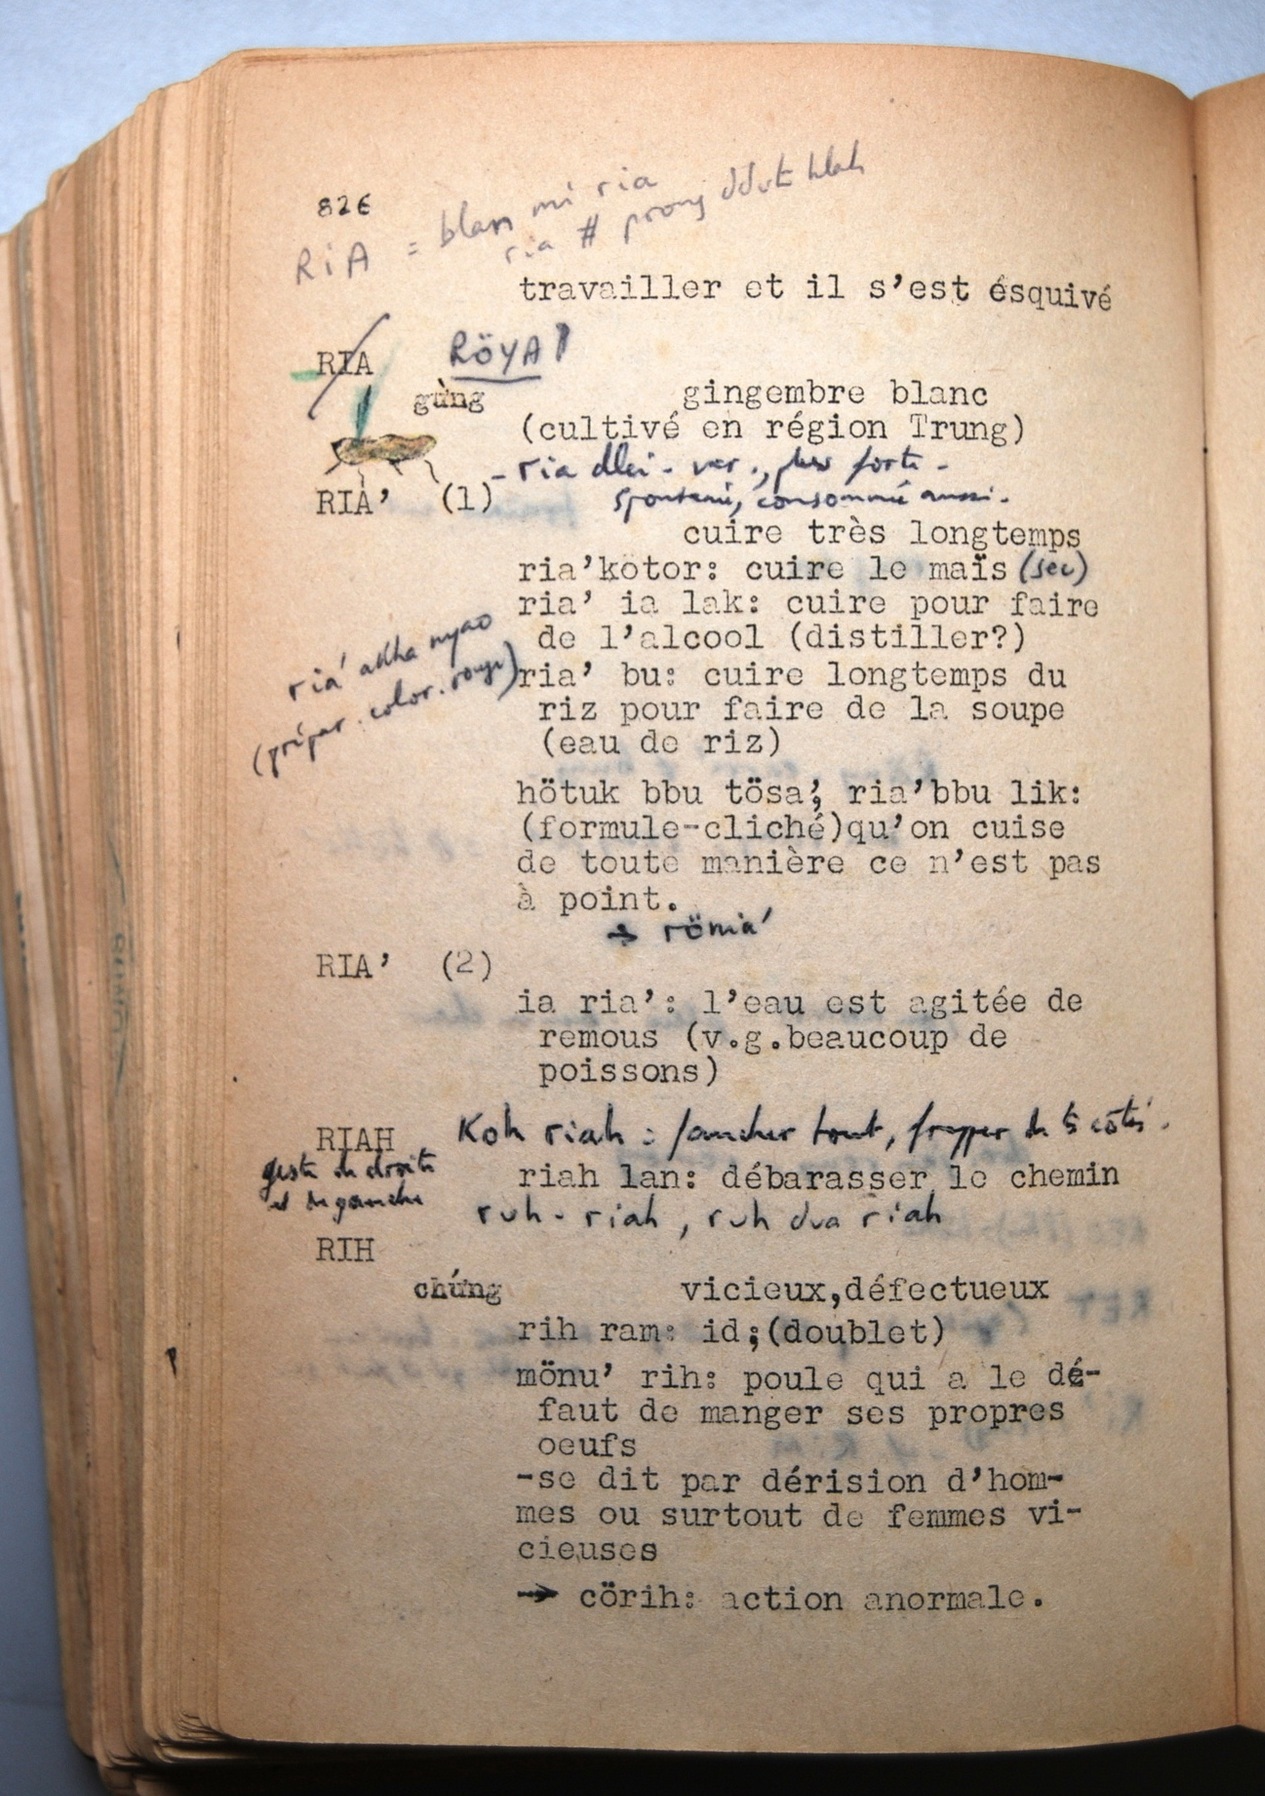 826
RiA = blan mi ria
ria # prong ddut hlah
travailler et il s'est ésquivé
RIA RÖYA'
gừng gingembre blanc
(cultivé en région Trung)
- ria dlei - var., plus forte -
spontané, consommé aussi.
RIA' (1)
cuire très longtemps
ria'kötor: cuire le maïs (sec)
ria' ia lak: cuire pour faire
de l'alcool (distiller?)
ria' akha nyao
(prépar. color. rouge)
ria' bu: cuire longtemps du
riz pour faire de la soupe
(eau de riz)
hötuk bbu tösa', ria'bbu lik:
(formule-cliché)qu'on cuise
de toute manière ce n'est pas
à point.
→ römia'
RIA' (2)
ia ria': l'eau est agitée de
remous (v.g.beaucoup de
poissons)
RIAH Koh riah : faucher tout, frapper de ts côtés.
geste de droite
et de gauche
riah lan: débarasser le chemin
ruh - riah, ruh dua riah
RIH
chứng vicieux,défectueux
rih ram: id;(doublet)
mönu' rih: poule qui a le dé-
faut de manger ses propres
oeufs
-se dit par dérision d'hom-
mes ou surtout de femmes vi-
cieuses
→ cörih: action anormale.